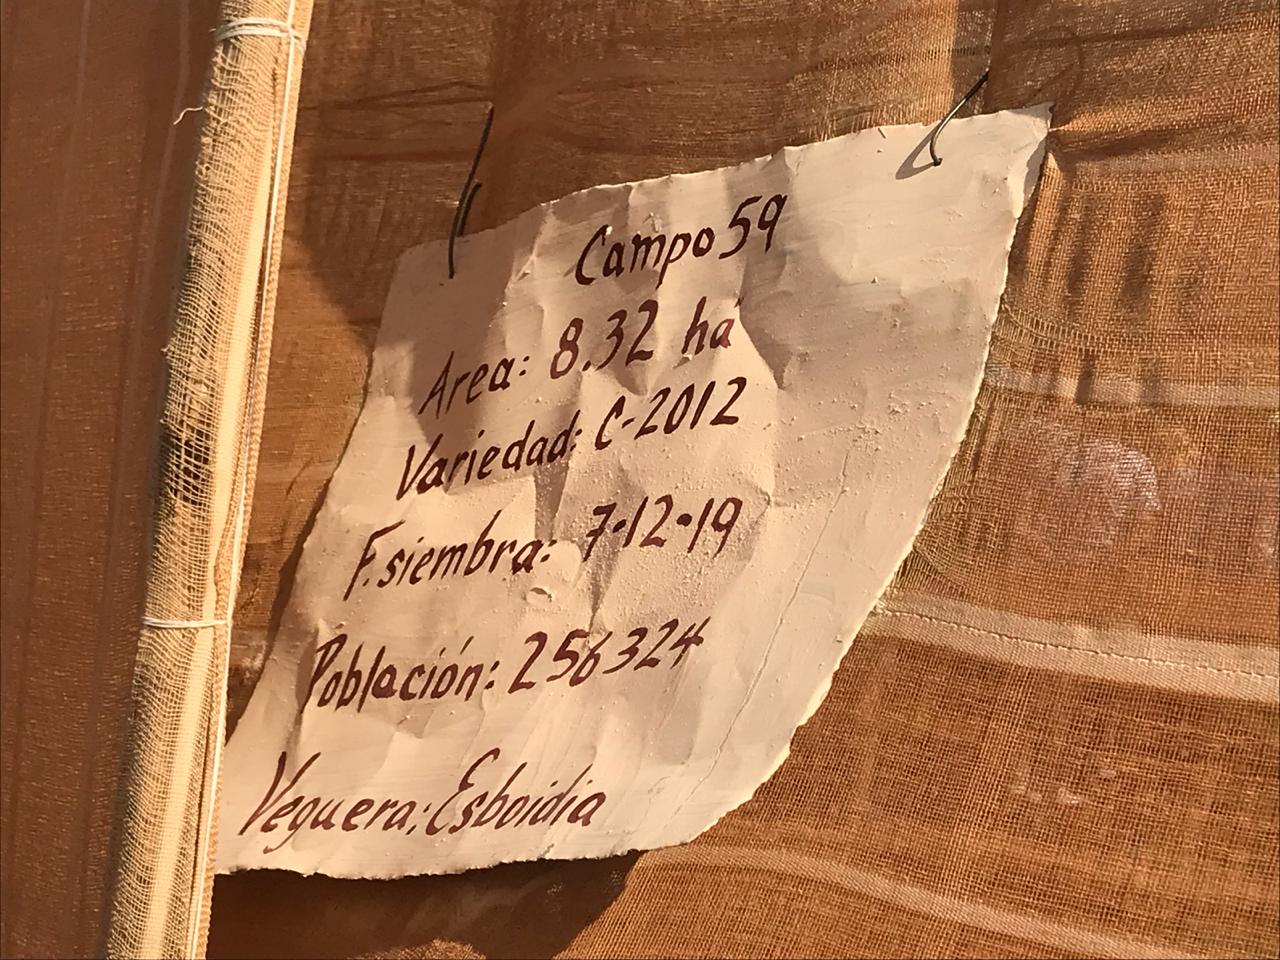 Campo 59
Area: 8.32 ha
Variedad: C-2012
F. siembra: 7-12-19
Población: 256324
Veguera: Esboidia